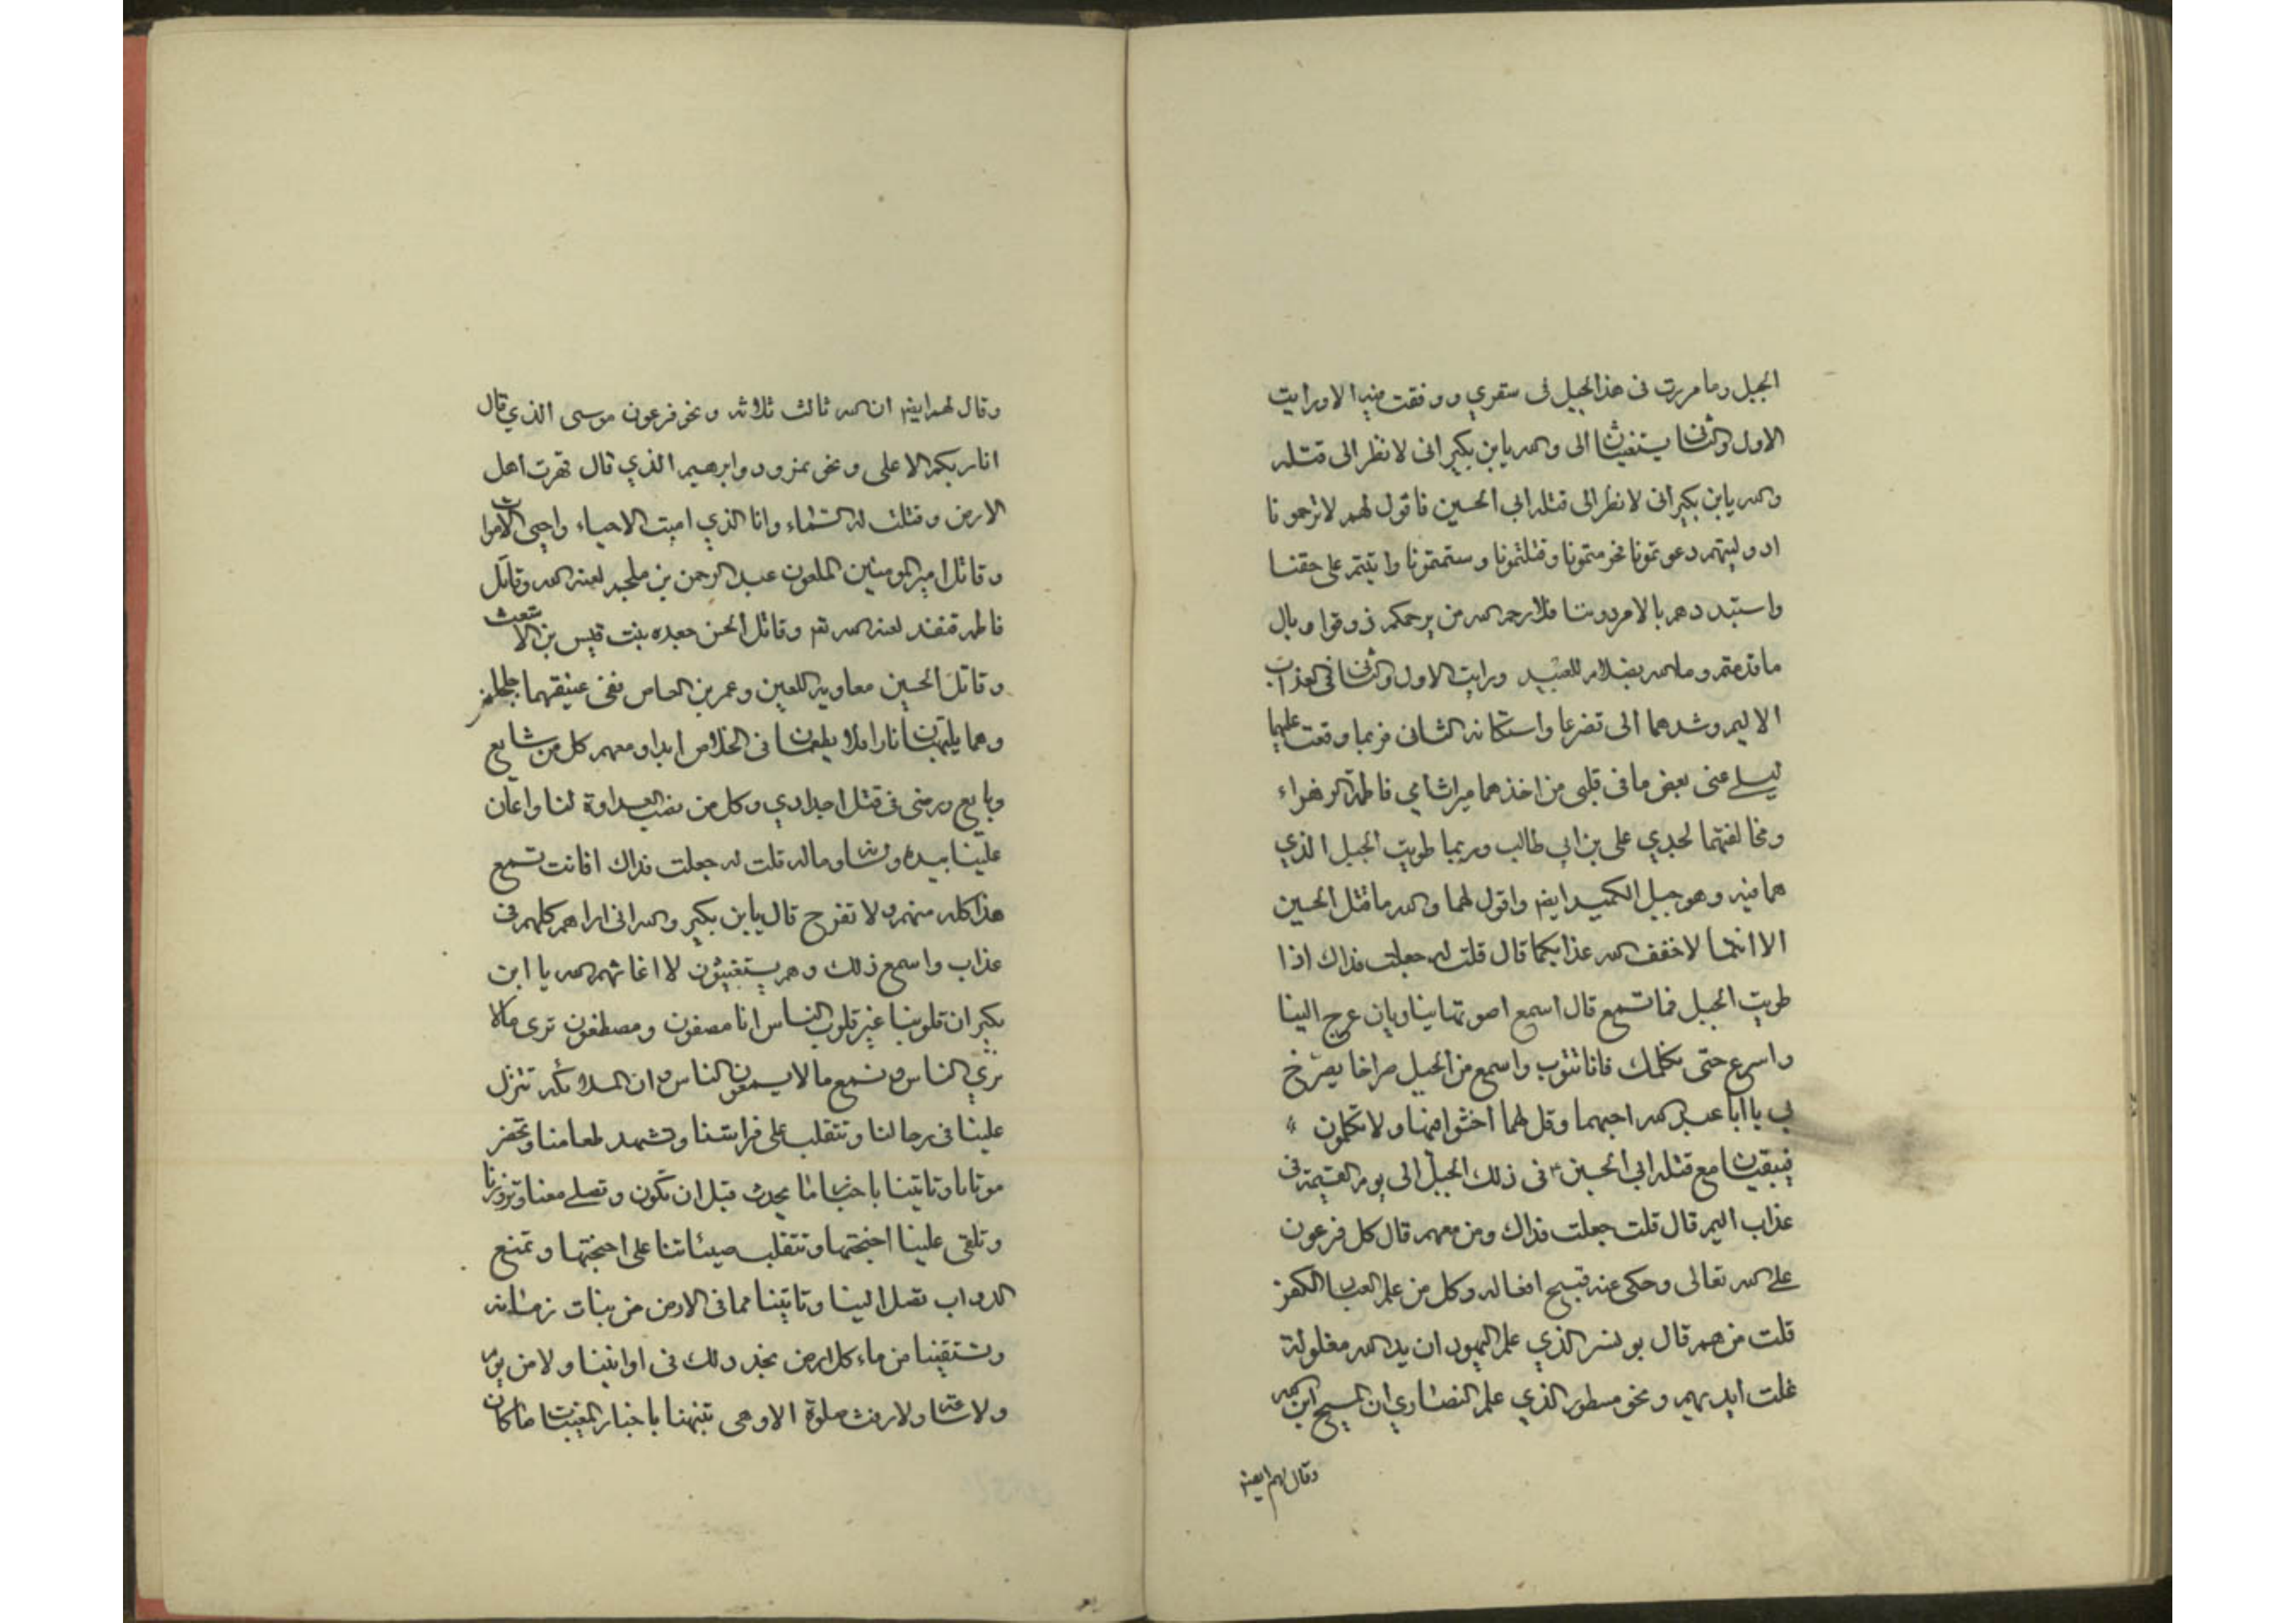 الجبل وما مررت فى هذا الجبل فى سفري ووقفت فيه الا ورايت
الاول والثانى يستغيثان الى والله يا ابن بكير انى لا نظر الى قتله
والله يا ابن بكير انى لا نظر الى قتله ابي الحسين فاقول لهم لا ترحمونا
اد وليتم دعوتمونا نحرمتمونا وقتلتمونا وستمتمونا واتيتم على حقنا
واستبددهم بالامر دوننا فلا رحم الله من يرحمكم ذوقوا وبال
ما قدمتم وما الله بظلام للعبيد ورايت الاول والثانى فى العذاب
الاليم وشدهما الى تضرعا واستكانه الثانى فربما وقعت عليهما
ليسلى عنى بعض ما فى قلبى من اخذهما ميراث امي فاطمة الزهراء
ومخالفتهما لجدي على بن ابي طالب وربما طويت الجبل الذي
هما فيه وهو جبل الكميد ايضا واقول لهما والله ما قتل الحسين
الا انتما لا خفف الله عذابكما قال قلت له جعلت فداك اذا
طويت الجبل فما تسمع قال اسمع اصوتهما ينادیان عرج الينا
واسرع حتى نكلمك فانا نتوب واسمع من الجبل صراخا يصرخ
بي يا ابا عبد الله اجبهما وقل لهما اخثوا فيها ولا تكلمون
فيبقيان مع قتله ابي الحسين فى ذلك الجبل الى يوم القيمة فى
عذاب اليم قال قلت جعلت فداك ومن معهم قال كل فرعون
على الله تعالى وحكى عنه قبيح افعاله وكل من علم العباد الكفر
قلت من هم قال بونسر الذي علم اليهود ان يد الله مغلولة
غلت ايديهم ونحو مسطور الذي علم النصاري ان المسيح ابن الله
وقال لهم ايضا
وقال لهم ايضا ان الله ثالث ثلاثه ونحو فرعون موسى الذي قال
انا ربكم الاعلى ونحو نمرود وابرهيم الذي قال قهرت اهل
الارض وقتلت له السماء وانا الذي اميت الاحياء واحيى الاموات
وقاتل امير المومنين الملعون عبد الرحمن بن ملجم لعنه الله وقاتل
فاطمه قنفند لعنه الله ثم وقاتل الحسن جعده بنت قيس بن الاشعث
وقاتل الحسين معاويه اللعين وعمر بن العاص نفى عنيقهما
وهما يلتهبان نارا فلا يطمعان فى الخلاص ابدا ومعهم كل من شايع
وبايع ورضى فى قتل اجدادي وكل من نصب العداوة لنا واعان
علينا بيده ولسانه وماله قلت له جعلت فداك افانت تسمع
هذا كله منهم ولا تفزح قال يا ابن بكير والله انى اراهم كلهم فى
عذاب واسمع ذلك وهم يستغيثون لا اغاثهم الله يا ابن
بكير ان قلوبنا غير قلوب الناس انا مصفون ومصطفون نرى ما لا
نري الناس ونسمع ما لا يسمعون الناس وان الملائكه تتنزل
علينا فى رحالنا وتتقلب على فراشنا وتشهد طعامنا وتحضر
موتانا وتاتينا باخبار ما يحدث قبل ان تكون وتصلى معنا وتزورنا
وتلقى علينا اجنحتها وتتقلب صيئاتنا على اجنحتها وتمنع
الدواب تصل الينا وتاتينا مما فى الارض من نبات زمانه
وتستقينا من ماء كل ارض نجد ذلك فى اوانينا ولا من يوم
ولا ساعه ولا رفث صلوة الا وهى تنبهنا باخبار المغيبات ما كان